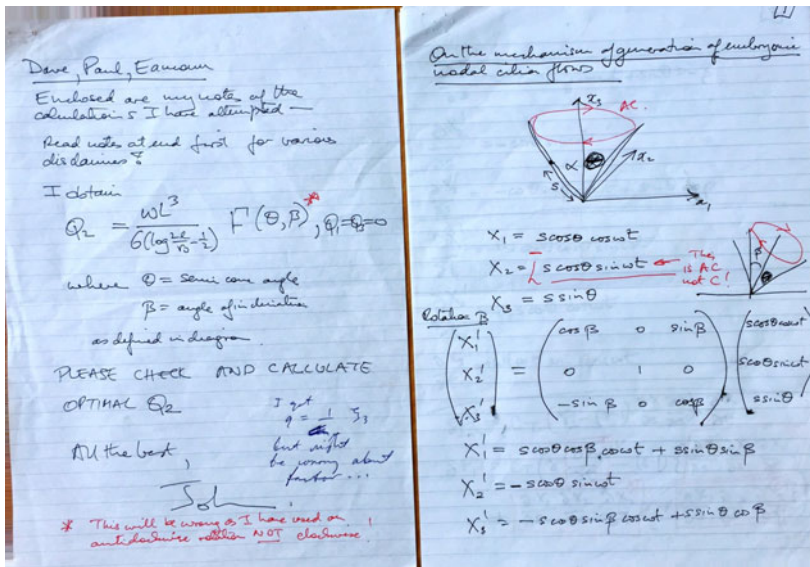 Dave, Paul, Eamonn
Enclosed are my notes of the
calculations I have attempted —
Read notes at end first for various
disclaimers!
I obtain
Q₂ = ωL³ / 6(log 2ℓ/r₀ - ½) F(θ, β)*, Q₁=Q₃=0
where θ = semi cone angle
β = angle of inclination
as defined in diagram.
PLEASE CHECK AND CALCULATE
OPTIMAL Q₂
I got
q = 1 ζ₃
but might
be wrong about
factor ...
All the best,
John
* This will be wrong as I have used an
anticlockwise rotation NOT clockwise!
[1]
On the mechanism of generation of embryonic
nodal cilia flows
x₃
AC.
α
x₂
s
x₁
X₁ = s cosθ cosωt
X₂ = [- s cosθ sinωt ← This
is AC
not C!
X₃ = s sinθ
β
Rotation β
(X₁') = (cosβ 0 sinβ) (s cosθ cosωt)
(X₂') = (0 1 0) (s cosθ sinωt)
(X₃') = (-sinβ 0 cosβ) (s sinθ)
X₁' = s cosθ cosβ cosωt + s sinθ sinβ
X₂' = - s cosθ sinωt
X₃' = - s cosθ sinβ cosωt + s sinθ cosβ